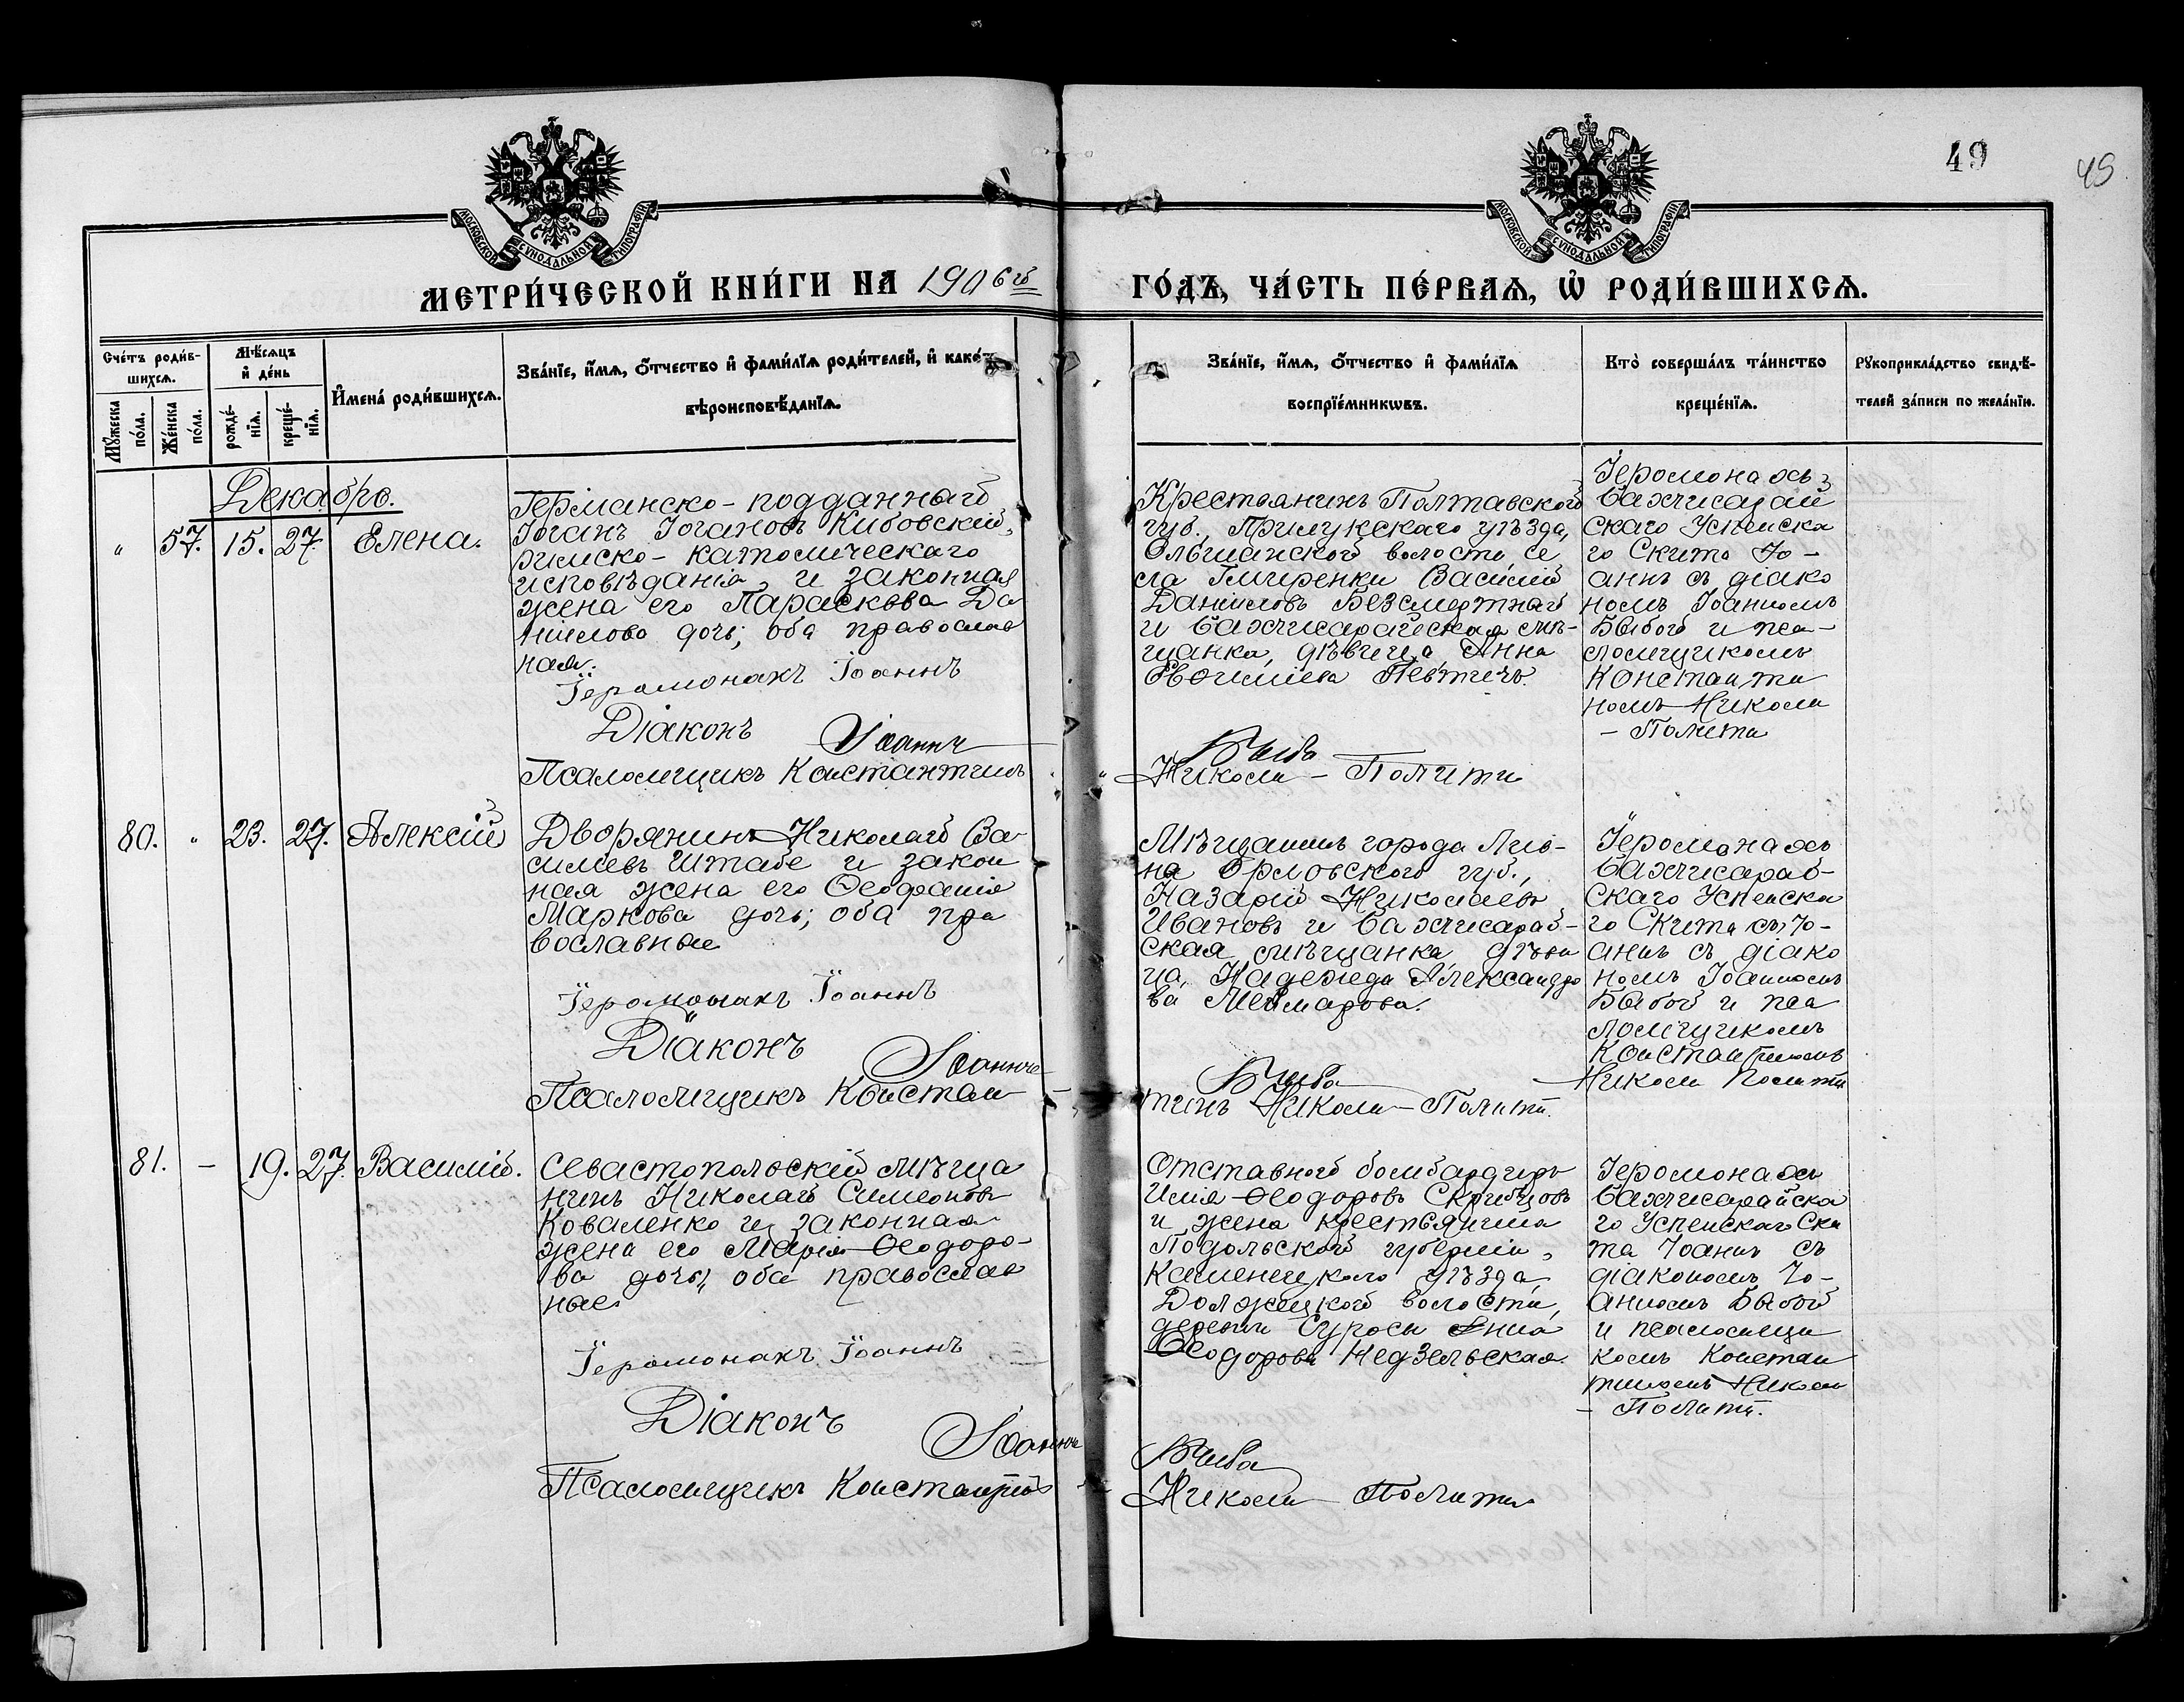 49
49
МОСКОВСКОЙ СУНОДАЛЬНОЙ ТИПОГРАФІИ
МОСКОВСКОЙ СУНОДАЛЬНОЙ ТИПОГРАФІИ
МЕТРИ́ЧЕСКОЙ КНИ́ГИ НА 1906й
ГО́ДЪ, ЧА́СТЬ ПЕ́РВАЯ, Ѡ҆ РОДИ́ВШИХСЯ.
Сче́тъ роди́в-
шихся.
Мѣ́сяцъ
и҆ де́нь
Мꙋ́жеска
по́ла.
Же́нска
по́ла.
рожде́-
нїя.
креще́-
нїя.
И҆мена̀ роди́вшихся.
Зва́нїе, и҆́мя, ѻ҆́тчество и҆ фами́лїя роди́телей, и҆ како́гѡ
вѣроисповѣ́данїя.
Зва́нїе, и҆́мя, ѻ҆́тчество и҆ фами́лїя
воспрїе́мникѡвъ.
Кто̀ соверша́лъ та́инство
креще́нїя.
Рꙋкоприкла́дство свидѣ́-
телей за́писи по жела́нїю.
Декабрь.
" 57. 15. 27. Елена.
Германско-подданный
Іоганъ Іогановъ Кибовскій,
римско-католическаго
исповѣданія, и законная
жена его Параскева Да
ніилова дочь; оба православ
ная.
Іеромонахъ Іоаннъ
Діаконъ Іоаннъ
Псаломщикъ Константинъ
Крестьянинъ Полтавской
губ., Прилукскаго уѣзда,
Ольшанской волости се
ла Гмиренки Василій
Даниловъ Безсмертный
и бахчисарайская мѣ-
щанка, дѣвица Анна
Евѳиміева
Быба
Николи-Полити
Іеромонахъ
бахчисарай
скаго Успенска
го Скита Іо-
аннъ съ діако
номъ Іоанномъ
Быбой и пса-
ломщикомъ
Константи
номъ Николи
- Полити
80. " 23. 27. Алексій
Дворянинъ Николай Ва
сильевъ Штабе и закон
ная жена его Ѳеофанія
Маркова дочь; оба пра
вославные
Іеромонахъ Іоаннъ
Діаконъ Іоаннъ
Псаломщикъ Констан
Мѣщанинъ города Лив-
на Орловской губ.,
Назарій Николаевъ
Ивановъ и бахчисарай-
ская мѣщанка дѣви
ца, Надежда Александро
ва
Быба
тинъ Николи-Полити.
Іеромонахъ
бахчисарай-
скаго Успенска
го Скита Іо-
аннъ съ діако
номъ Іоанномъ
Быбой и пса
ломщикомъ
Константиномъ
Николи Полити
81. - 19. 27. Василій.
Севастопольскій мѣща
нинъ Николай Симеоновъ
Коваленко и законная
жена его Марія Ѳеодоро-
ва дочь, оба православ
ные.
Іеромонахъ Іоаннъ
Діаконъ Іоаннъ
Псаломщикъ Константинъ
Отставной бомбардиръ
Илія Ѳеодоровъ Скрипцовъ
и жена крестьянина
Подольской губерніи,
Каменецкаго уѣзда,
Должецкой волости,
деревни Анна
Ѳеодорова Недзельская.
Быба
Николи Полити
Іеромонахъ
бахчисарайска
го Успенскаго Ски
та Іоаннъ съ
діакономъ Іо-
анномъ Быбой
и псаломщи
комъ Констан
тиномъ Николи
- Полити.